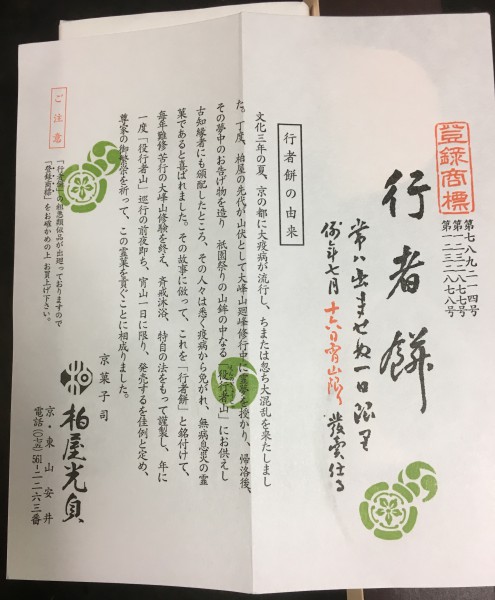 登録商標
第七八九二一四号
第一二三二八七七号
第一二三二八七八号
行者餅
常ハ出ませぬ一日限り
例年七月十六日宵山限り
發売仕る
行者餅の由来
文化三年の夏、京の都に大疫病が流行し、ちまたは忽ち大混乱を来たしまし
た。丁度、柏屋の先代が山伏として大峰山廻峰修行中に霊夢を授かり、帰洛後、
その夢中のお告げ物を造り 祇園祭りの山鉾の中なる「役行者山」にお供えし
古知縁者にも頒配したところ、その人々は悉く疫病から免がれ、無病息災の霊
菓であると喜ばれました。その故事に倣って、これを「行者餅」と銘付けて、
毎年難修苦行の大峰山修験を終え、斉戒沐浴、特自の法をもって謹製し、年に
一度「役行者山」巡行の前夜即ち、宵山一日に限り、発売するを佳例と定め、
尊家の御繁栄を祈って、この霊菓を貢ぐことに相成りました。
京菓子司
柏屋光貞
京・東山安井
電話(〇七五)561-二二六三番
ご注意
「行者餅」の粗悪類似品が出廻っておりますので
「登録商標」をお確かめの上 お買上げ下さい。